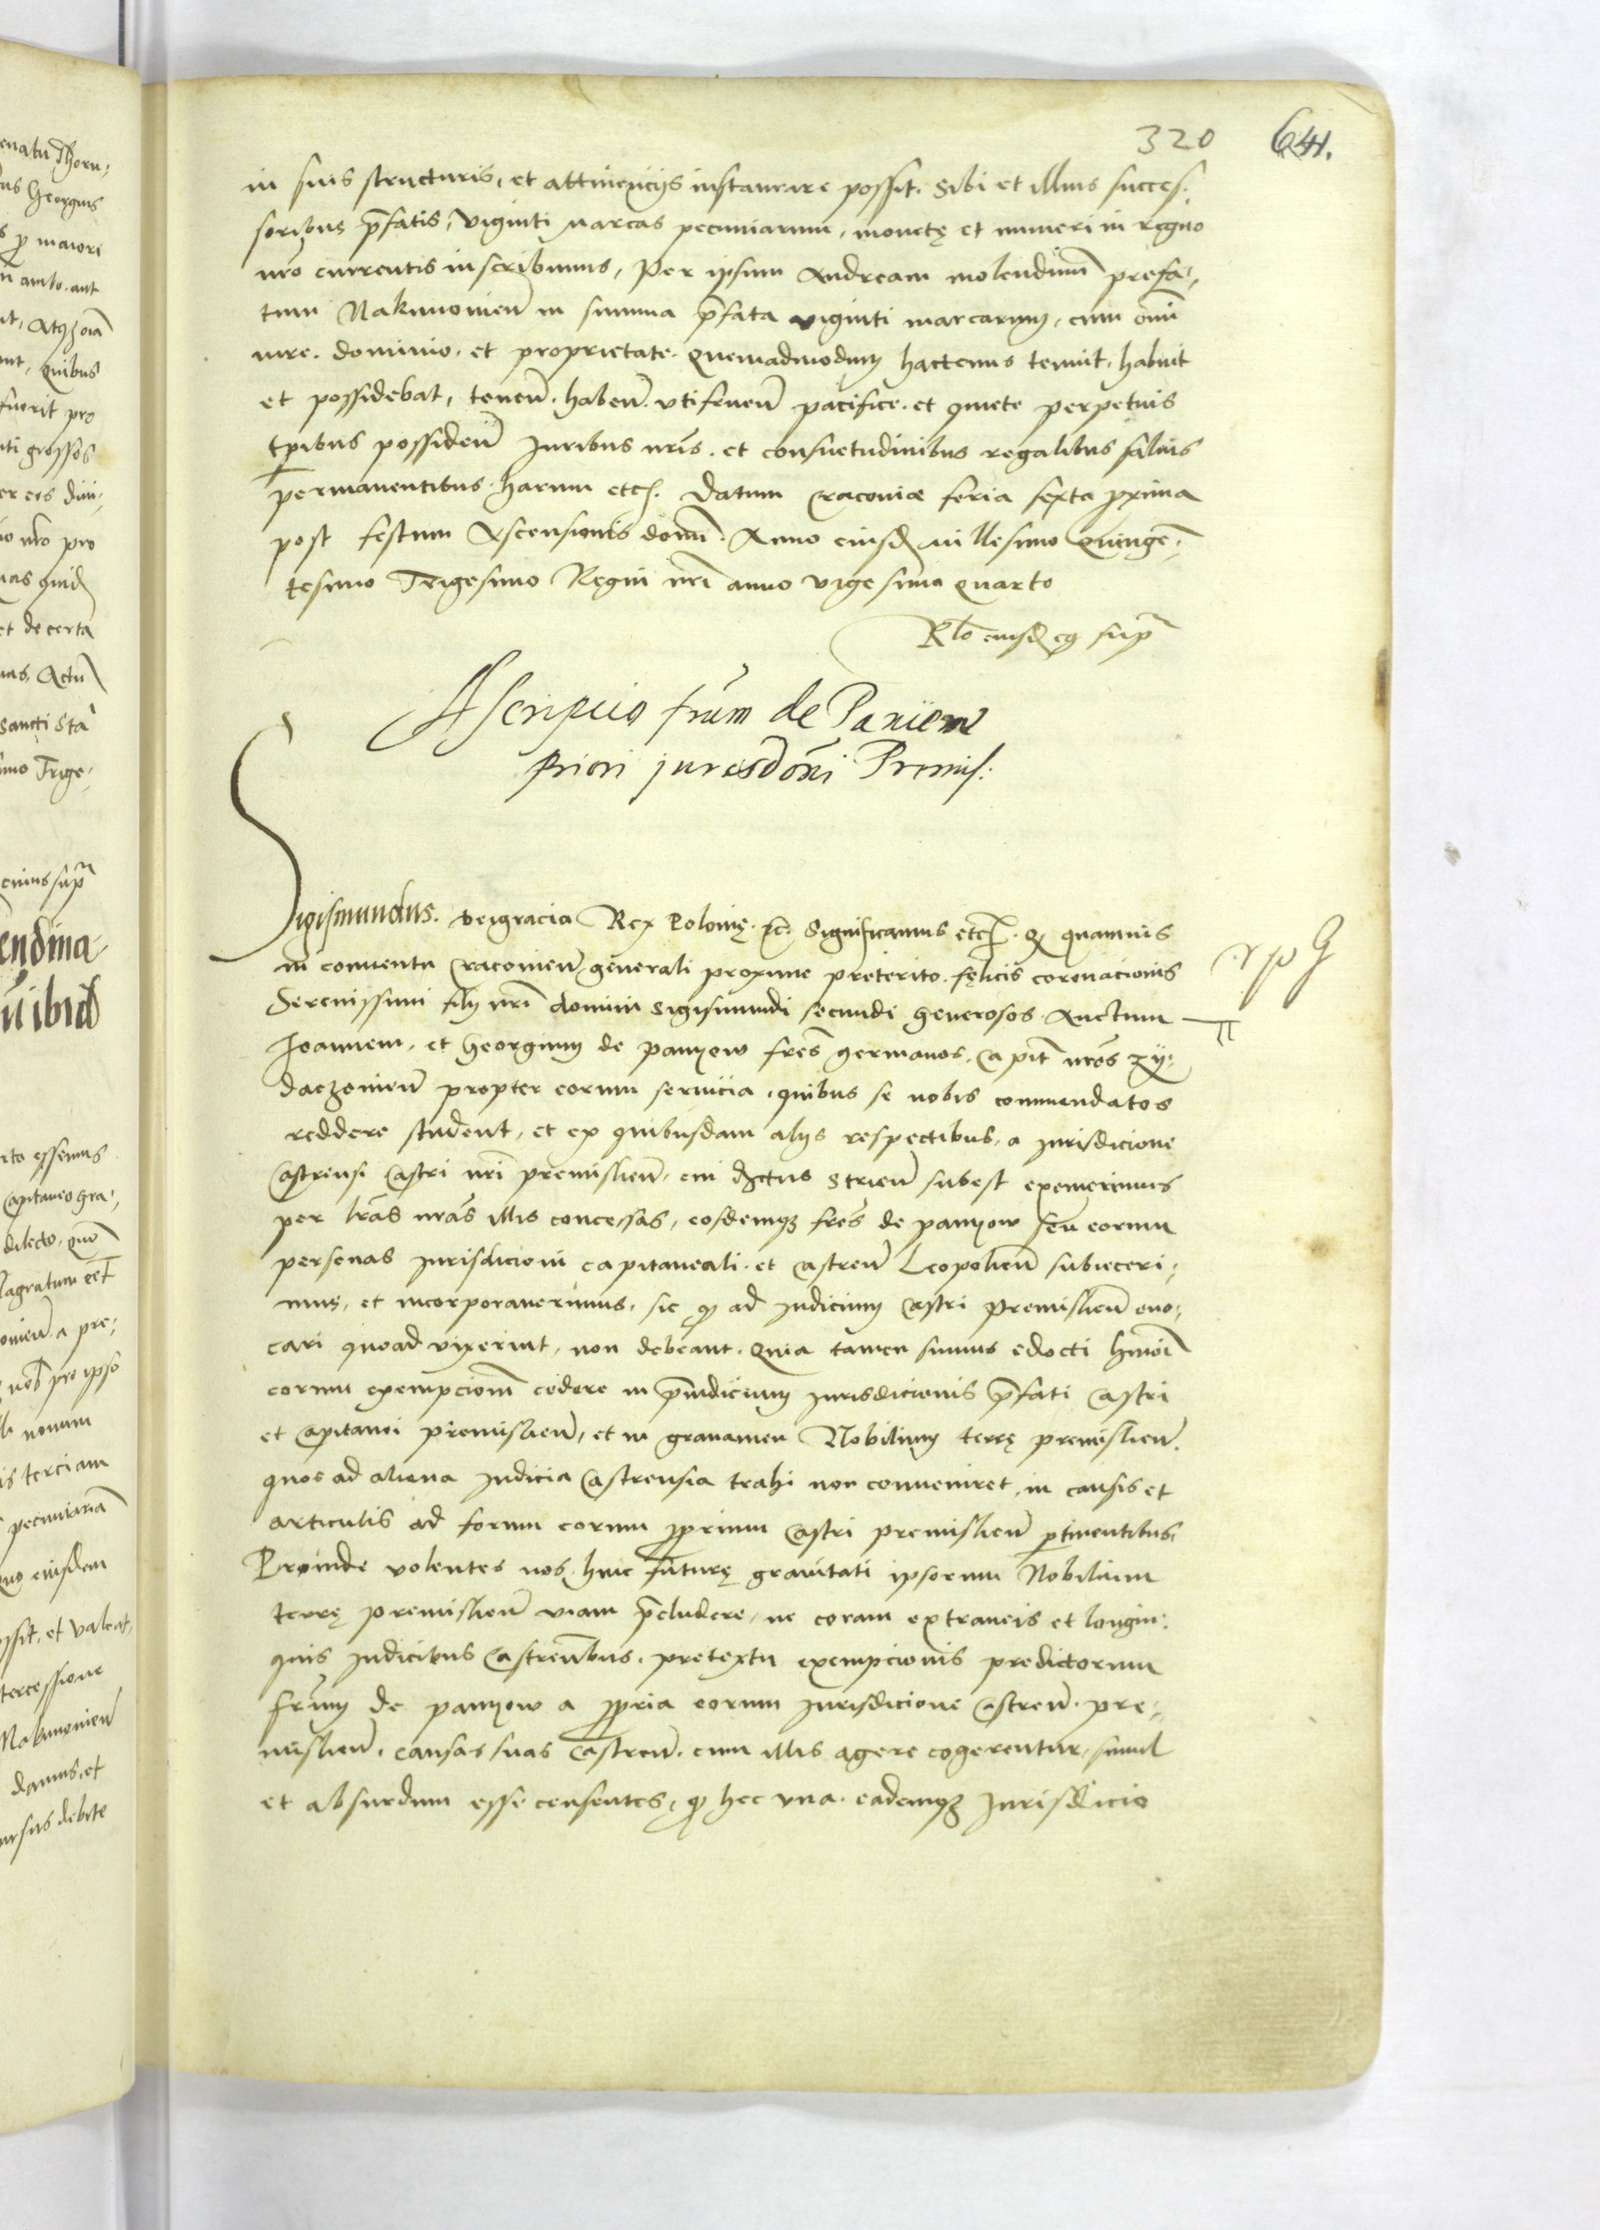 320 641.
in suis structuris, et attinencijs instaurare possit. Sibi et illius succes,
soribus p̄fatis, viginti marcas pecuniarum, monetę et numeri in regno
nr̄o currentis inscribimus, Per ipsum Andream molendinū prefa,
tum Nakwonien̄ in summa p̄fata viginti marcarum, cum omī
iure. dominio. et proprietate. quemadmodum hactenus tenuit. habuit
et possidebat, tenen̄. haben̄. vtifruen̄ pacifice. et quiete perpetuis
tp̄ibus possiden̄ Iuribus nr̄is. et consuetudinibus regalibus saluis
permanentibus. harum etc. Datum Cracouiæ feria sexta proxima
post festum Ascensionis domī. Anno eiusd millesimo Quinge,
tesimo Trigesimo Regni nr̄i anno vigesimo quarto
Rl̄o eiusd sup̄
Ascripcio fr̄um de Paniow
priori jurisdōni Premis:
Sigismundus. Dei gracia Rex Polonię. etc. Significamus etc. Q quamuis
in conuentu Cracouien̄ generali proxime preterito. fęlicis coronacionis
Serenissimi filij nr̄i domini Sigismundi secundi generosos Auctum
Joannem. et Georgium de paniow fr̄es germanos. Capit̄ nr̄os zy,
daczouien̄ propter eorum seruicia, quibus se nobis commendatos
reddere student, et ex quibusdam alijs respectibus, a Iurisdicione
Castrensi Castri nr̄i premislien̄. cui districtus Strien̄ subest exemerimus
per lr̄as nr̄as illis concessas, eosdemq fr̄es de paniow seu eorum
personas Iurisdicioni capitaneali. et Castren̄ Leopolien̄ subieceri,
mus, et incorporauerimus, sic q ad Iudicium Castri premislien̄ euo,
cari quoad vixerint, non debeant. Quia tamen sumus edocti hmōi
eorum exempcionem cedere in p̄iudicium Iurisdicionis p̄fati Castri
et Capitanei premislien̄, et in grauamen Nobilium terrę premislien̄.
quos ad aliena Iudicia Castrensia trahi non conueniret, in causis et
articulis ad forum eorum proprium Castri premislien̄ pertinentibus.
Proinde volentes nos huic futurę grauitati ipsorum Nobilium
terrę premislien̄ viam p̄cludere, ne coram extraneis et longin,
quis Iudicibus Castren̄bus. pretextu exempcionis predictorum
fr̄um de paniow a propria eorum Iurisdicione Castren̄. pre,
mislien̄. causas suas Castren̄. cum illis agere cogerentur, simul
et absurdum esse censentes, q hec vna. eademq Iurisdicio